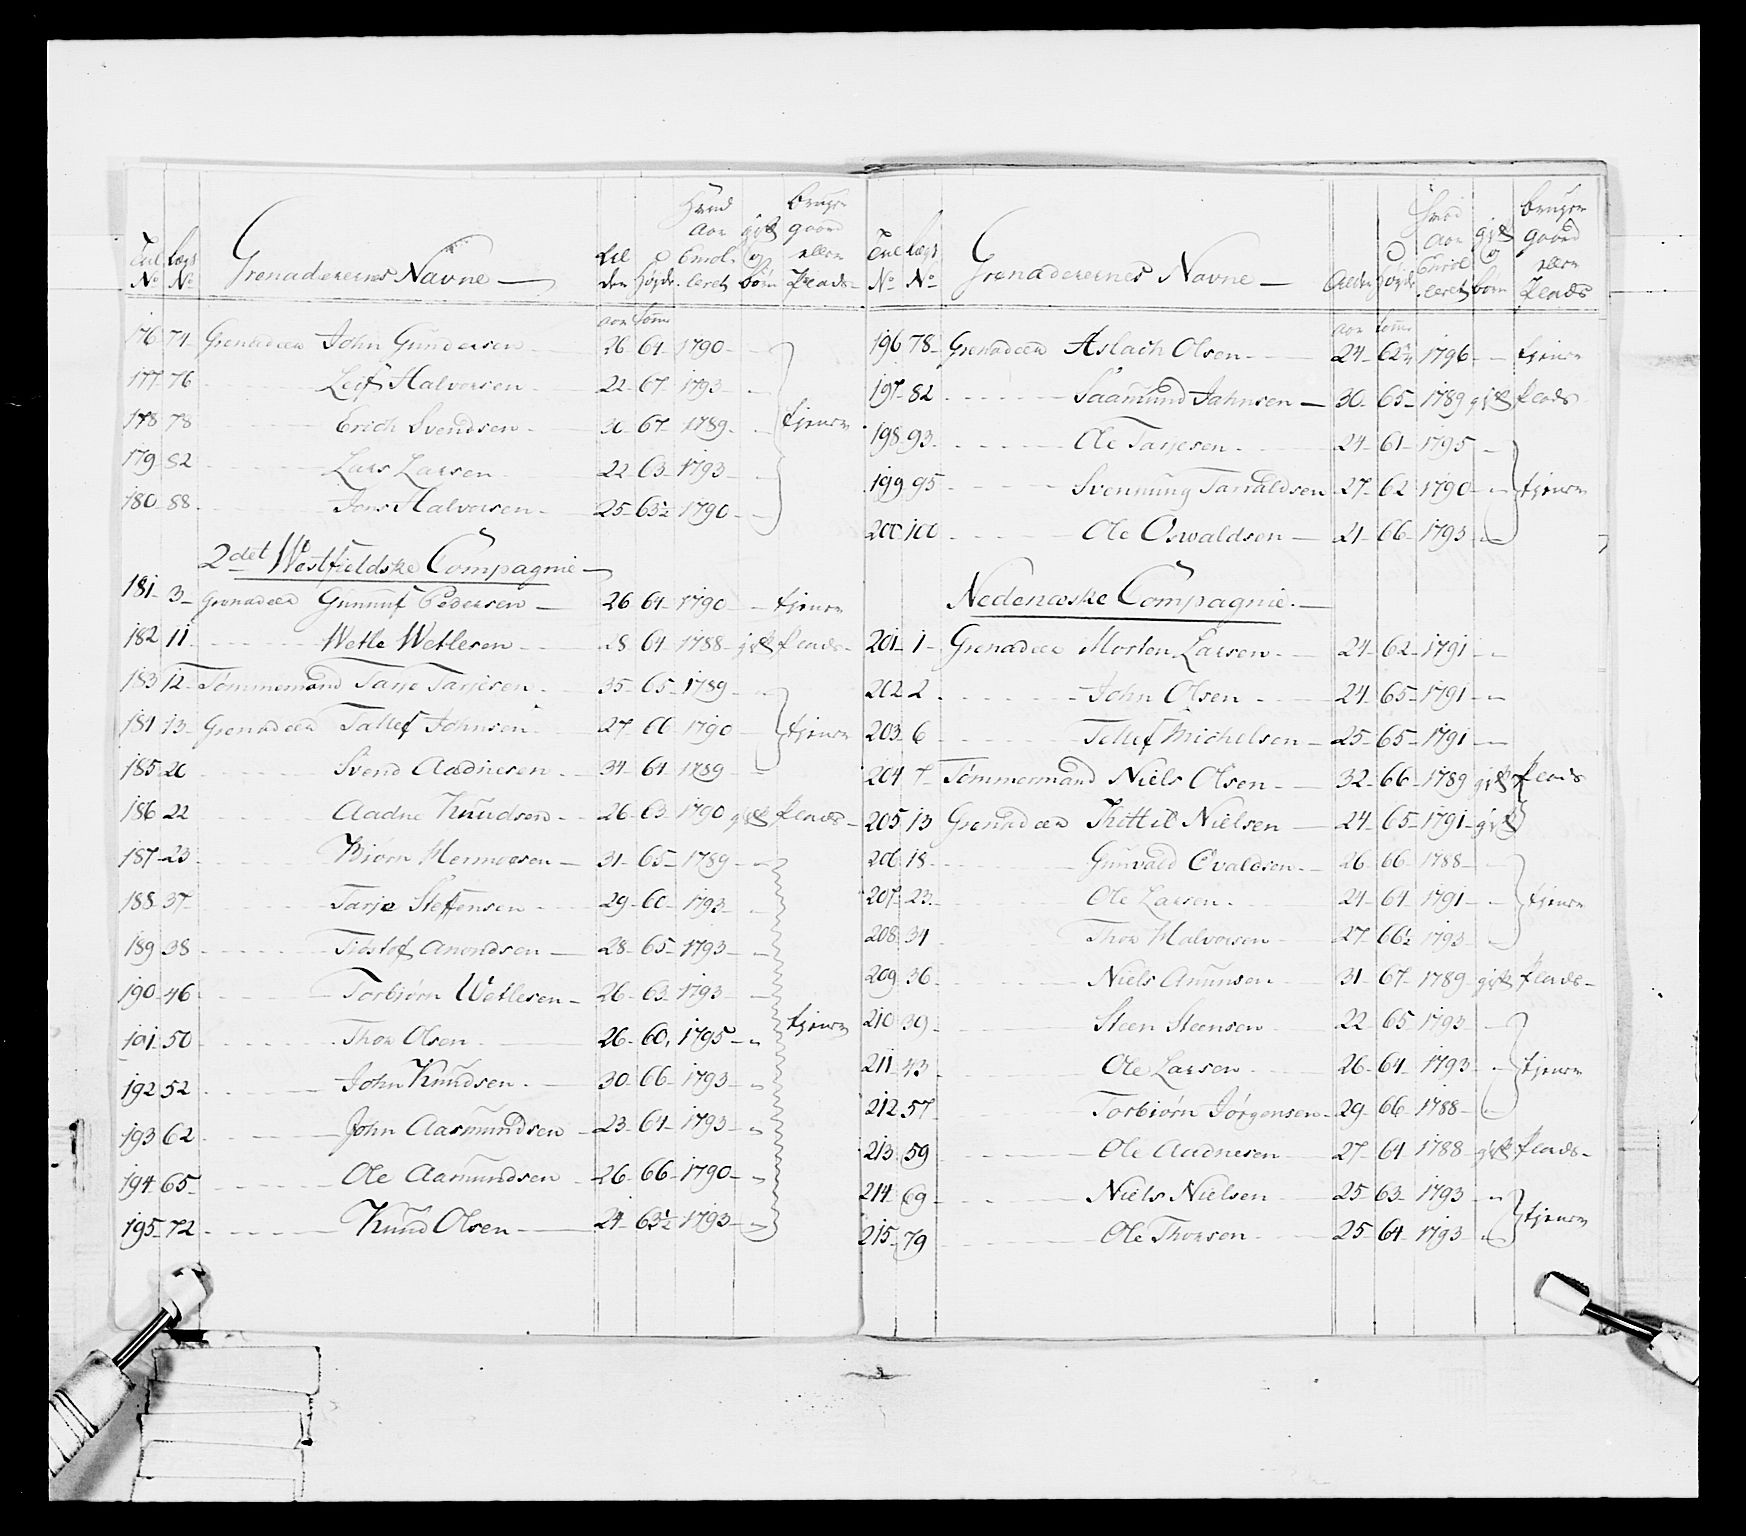 Grenaderernes Navne
176 74 Grenadeer John Gundersen 26 64 1790
177 76 Leif Halvorsen 22 67 1793
178 78 Erich Svendsen 67 1789 tjener
179 82 Lars Larsen 22 63 1793
180 88 Jens Halvorsen 25 63½ 1790
2det Westfieldske Compagnie
181 3 Grenadeer Gunnuf Pedersen 26 64 1790 tjener
182 11 Wetle Wetlesen 28 64 1788 gift Plads
183 12 Tømmermand Tarje Tarjesen 35 65 1789
184 13 Grenadeer Tallef Johnsen 27 66 1790 tjener
185 20 Svend Aadnesen 34 64 1789
186 22 Aadne Knudsen 26 63 1790 gift Plads
187 23 Biørn 31 65 1789
188 37 Tarje Steffensen 29 60 1793
189 38 Tiostof Anondsen 28 65 1793
190 46 Torbiørn Wetlesen 26 63 1793
191 50 Thor Olsen 26 60 1795 tjener
192 52 John Knudsen 30 66 1793
193 62 John Aasmundsen 23 64 1793
194 65 Ole Aasmundsen 26 66 1790
195 72 Knud Olsen 24 63½ 1793
Grenaderernes Navne
196 78 Grenadeer Aslach Olsen 24 1796 tjener
197 82 Saamund Jahnsen 30 65 1789 gift Plads
198 93 Ole Tarjesen 24 61 1795
199 95 Svennung Tarraldsen 27 62 1790 tjener
200 100 Ole Oswaldsen 21 66 1793
Nedenæske Compagnie
201 1 Grenadeer Morten Larsen 24 62 1791
202 2 John Olsen 24 65 1791
203 6 Tellef Michelsen 25 65 1791
204 7 Tømmermand Niels Olsen 32 66 1789 gift Plads
205 13 Grenadeer Kittil Nielsen 24 65 1791 gift
206 18 Gunvald Evaldsen 26 66 1788
207 23 Ole Larsen 24 64 1791 tjener
208 34 Thor Halvorsen 27 66½ 1793
209 36 Niels Amunsen 31 67 1789 gift Plads
210 39 Steen Steensen 22 65 1793
211 43 Ole Larsen 26 64 1793 tjener
212 57 Torbiørn Jørgensen 29 66 1788
213 59 Ole Aadnesen 27 64 1788 gift Plads
214 69 Niels Nielsen 25 63 1793
215 79 Ole Thorsen 25 64 1793 tjener